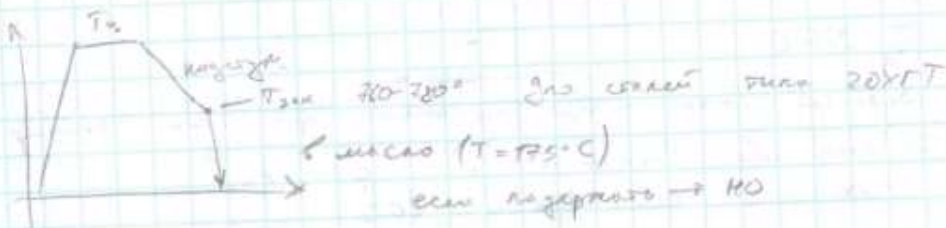 Тц.
подстуж.
Тзак 760-780° Это сталей типа 20ХГТ
в масло (T=175°C)
если подержать → НО